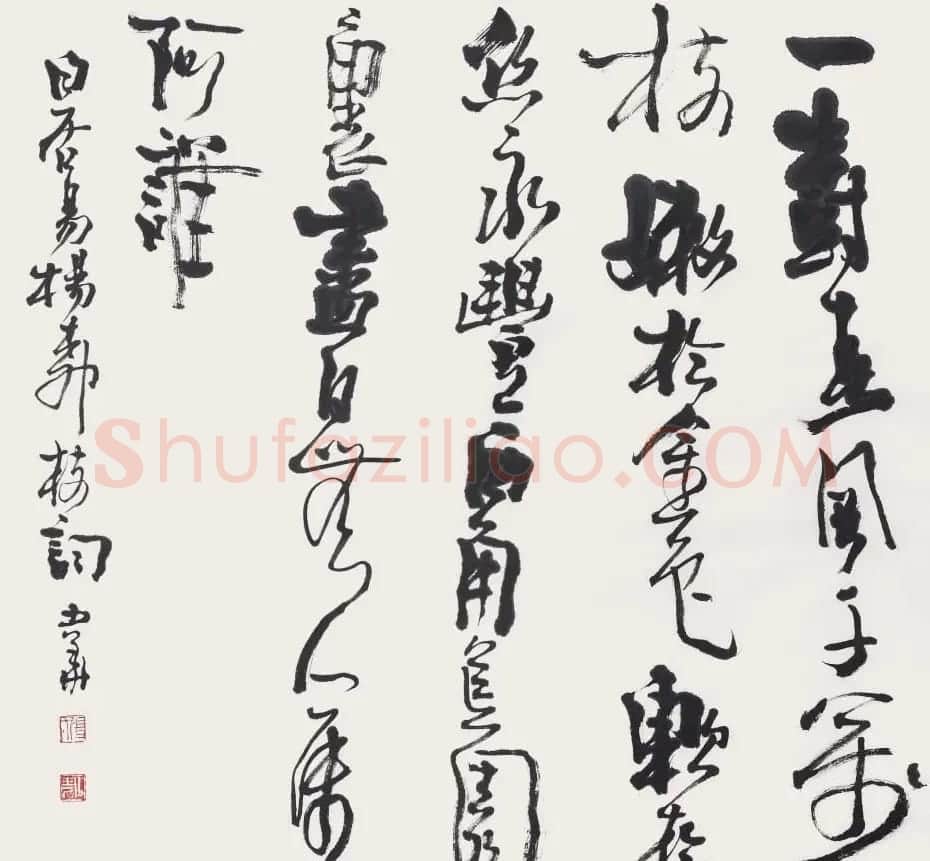 一樹春風千萬
枝嫩於金色軟於
絲永豐西角荒園
裏盡日無人屬
阿誰
白居易楊柳枝詞
Shufaziliao.COM